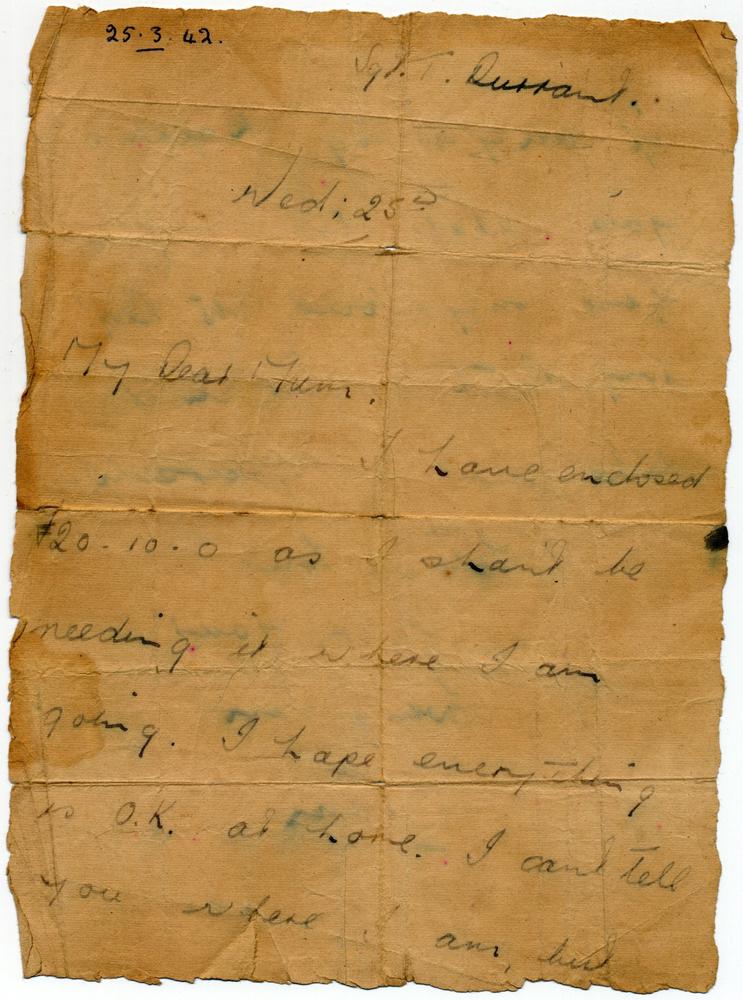 25.3.42.
Sgt. T. Durrant.
Wed; 25th
My Dear Mum,
I have enclosed
£20-10-0 as I shan't be
needing it where I am
going. I hope everything
is O.K. at home. I can't tell
you where I am, but